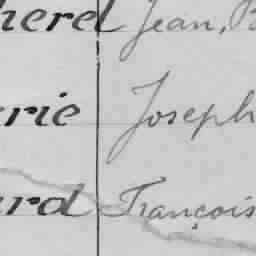 herel Jean, P
erie Joseph
ard François